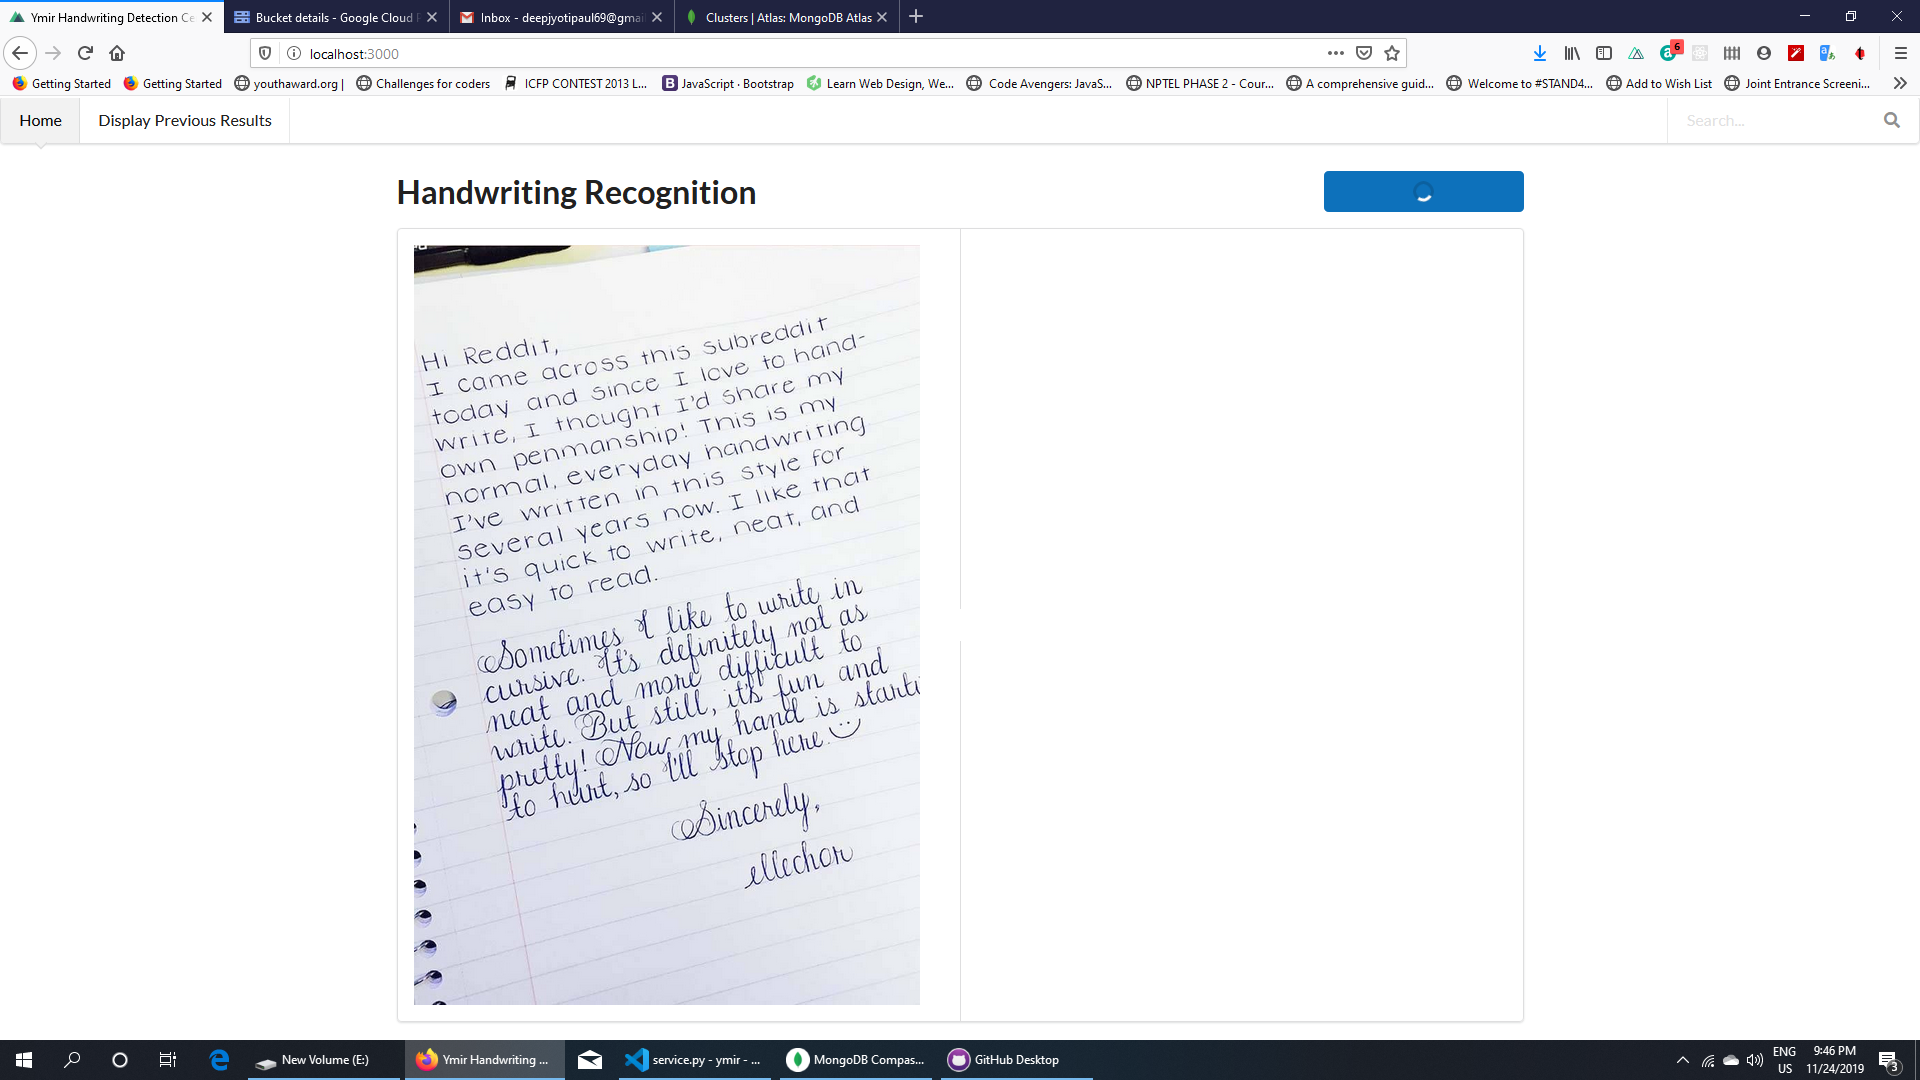 Ymir Handwriting Detection Ce
Bucket details - Google Cloud P
Inbox - deepjyotipaul69@gmai
Clusters | Atlas: MongoDB Atlas
localhost:3000
6
Getting Started
Getting Started
youthaward.org |
Challenges for coders
ICFP CONTEST 2013 L...
JavaScript · Bootstrap
Learn Web Design, We...
Code Avengers: JavaS...
NPTEL PHASE 2 - Cour...
A comprehensive guid...
Welcome to #STAND4...
Add to Wish List
Joint Entrance Screeni...
Home
Display Previous Results
Search...
Handwriting Recognition
Hi Reddit,
I came across this subreddit
today and since I love to hand-
write, I thought I'd share my
own penmanship! This is my
normal, everyday handwriting
I've written in this style for
several years now. I like that
it's quick to write, neat, and
easy to read.
Sometimes I like to write in
cursive. It's definitely not as
neat and more difficult to
write. But still, it's fun and
pretty! Now my hand is starti
to hurt, so I'll stop here.
Sincerely,
ellechor
New Volume (E:)
Ymir Handwriting ...
service.py - ymir - ...
MongoDB Compas...
GitHub Desktop
ENG
US
9:46 PM
11/24/2019
3